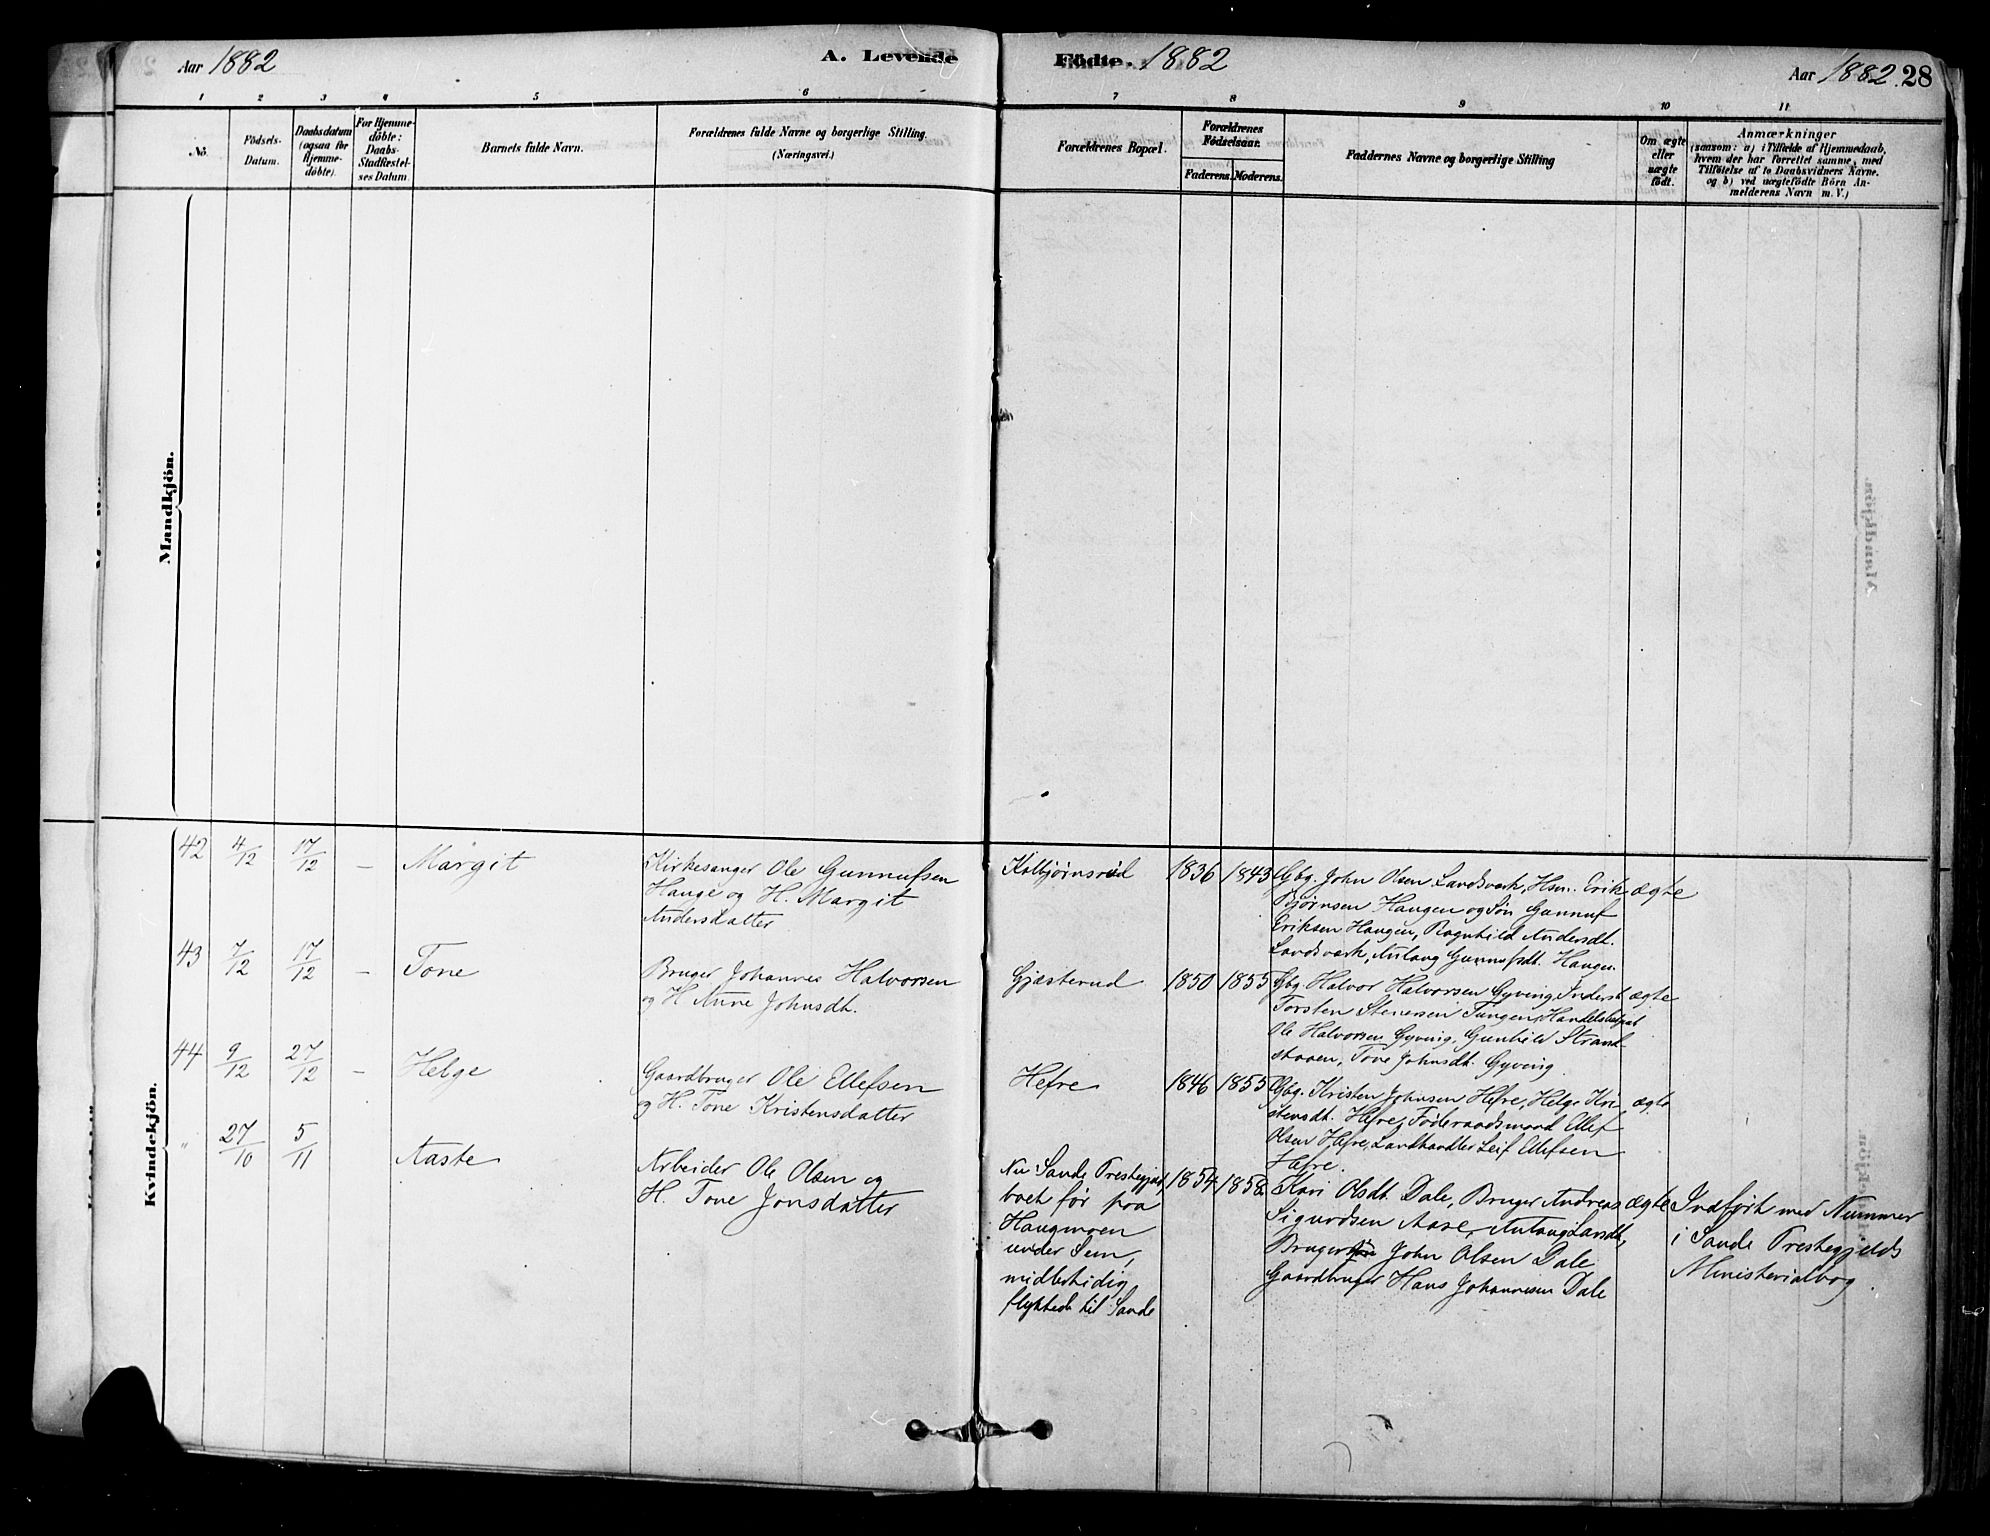 Aar 1882
A. Levende
Fødte. 1882
Aar 1882. 28
1 2 3 4 5 6 7 8 9 10 11
No.
Födsels-
Datum.
Daabsdatum
(ogsaa for
Hjemme-
döbte).
For Hjemme-
döbte:
Daabs-
Stadfæstel-
ses Datum.
Barnets fulde Navn.
Forældrenes fulde Navne og borgerlige Stilling.
(Næringsvei.)
Forældrenes Bopæl.
Forældrenes
Födselsaar.
Faderens. Moderens.
Faddernes Navne og borgerlige Stilling
Om ægte
eller
uægte
födt.
Anmærkninger
(saasom: a) i Tilfælde af Hjemmedaab,
hvem der har forrettet samme, med
Tilföielse af to Daabsvidners Navne.
og b) ved uægtefödte Börn An-
melderens Navn m. V.)
Mandkjön.
Kvindekjön.
42 4/12 17/12 – Margit
Kirkesanger Ole Gunnufsen
Hauge og H. Margit
Andersdatter
Kolbjørnsrud 1836 1843
Gbg. John Olsen Landsverk, Hsm. Erik
Bjørnsen Haugen og Søn Gunnuf
Eriksen Haugen, Ragnhild Andersdt.
Landsverk, Anlaug Gunnufsdt. Haugen
ægte
43 7/12 17/12 – Tone
Bruger Johannes Halvorsen
og H. Anne Johnsdt.
Gjæsterud 1850 1855
Gbg. Halvor Halvorsen Gyving, Inderst
Torsten Stenersen Tungen, Handelsbetjent
Ole Halvorsen Gyving, Gunhild Strand-
staaen, Tone Johnsdt. Gyving
ægte
44 9/12 27/12 – Helge
Gaardbruger Ole Ellefsen
og H. Tone Kristensdatter
Hefre 1846 1855
Gbg. Kristen Johnsen Hefre, Helge Kri-
stensdt. Hefre, Føderaadsmand Ellef
Olsen Hefre, Landhandler Leif Ellefsen
Hefre.
ægte
" 27/10 5/11 Aaste
Arbeider Ole Olsen og
H. Tone Jonsdatter
Nu Sande Prestegjæld,
boet før paa
Haugmoen
under Sem,
midlertidig
flyttede til Sande
1854 1858
Kari Olsdt. Dale, Bruger Andreas
Sigurdsen Aase, Anlaug Larsdt,
Bruger John Olsen Dale
Gaardbruger Hans Johannesen Dale
ægte
Indført med Nummer
i Sande Prestegjelds
Ministerialbog